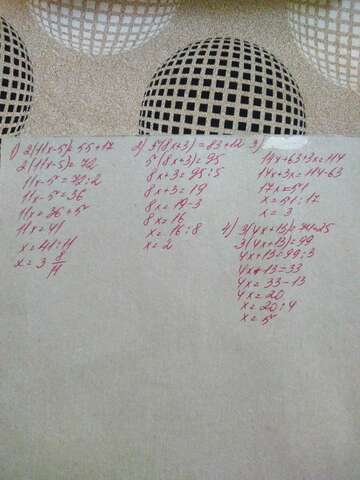 1) 2(11x-5)=55+17
2(11x-5)=72
11x-5=72:2
11x-5=36
11x=36+5
11x=41
x=41:11
x=3 8/11
2) 5(8x+3)=83+12
5(8x+3)=95
8x+3=95:5
8x+3=19
8x=19-3
8x=16
x=16:8
x=2
3)
14x+63+3x=114
14x+3x=114-63
17x=51
x=51:17
x=3
4) 3(4x+13)=74+25
3(4x+13)=99
4x+13=99:3
4x+13=33
4x=33-13
4x=20
x=20:4
x=5